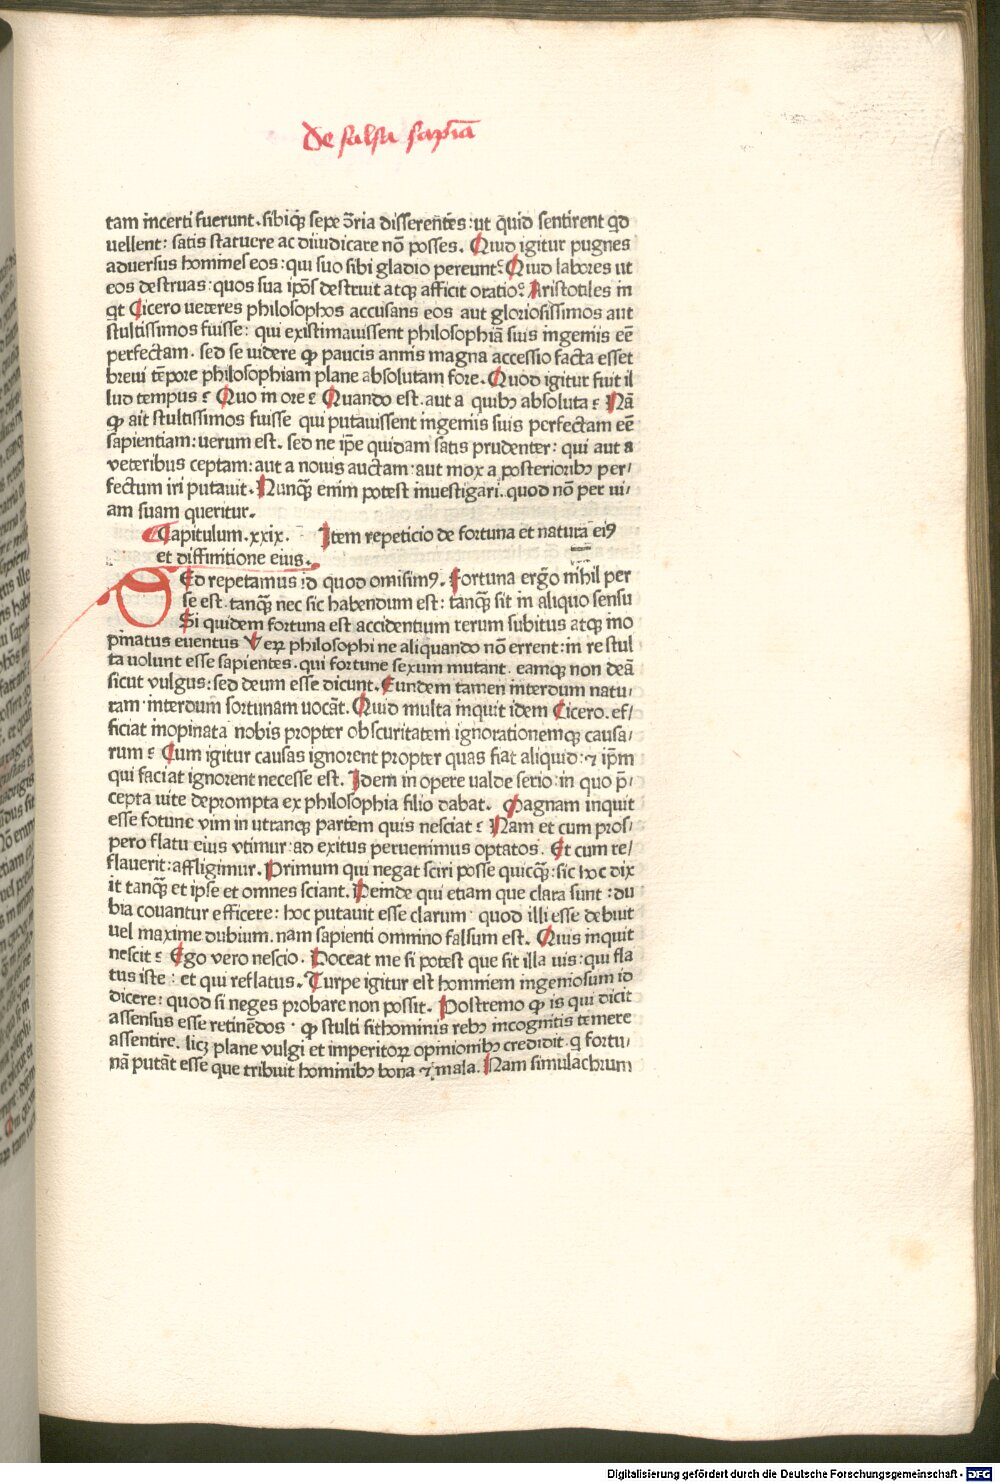 De falsa sapīa
tam incerti fuerunt. sibiq̃ sepe ɔ̄ria disserentes: ut quid sentirent qd
uellent: satis statuere ac diiudicare nō posses. Quid igitur pugnes
aduersus homines eos: qui suo sibi gladio pereunt? Quid labores ut
eos destruas: quos sua ip̄os destruit atq̃ afficit oratio? Aristotiles in
qt Cicero ueteres philosophos accusans eos aut gloriosissimos aut
stultissimos fuisse: qui existimauissent philosophiā suis ingeniis eē
perfectam. sed se uidere ꝙ paucis annis magna accessio facta esset
breui tēpore philosophiam plane absolutam fore. Quod igitur fuit il
lud tempus? Quo in ore? Quando est. aut a quibꝰ absoluta? Nā
ꝙ ait stultissimos fuisse qui putauissent ingeniis suis perfectam eē
sapientiam: uerum est. sed ne ip̄e quidam satis prudenter: qui aut a
veteribus ceptam: aut a nouis auctam: aut mox a posterioribꝰ per/
fectum iri putauit. Nunq̃ enim potest inuestigari. quod nō per ui/
am suam queritur.
Capitulum. xxix. Item repeticio de fortuna et natura eiꝰ
et diffinitione eius.
SEd repetamus id quod omisimꝰ. Fortuna ergo nihil per
se est. tanq̃ nec sic habendum est: tanq̃ sit in aliquo sensu
Si quidem fortuna est accidentium rerum subitus atq̃ ino
pinatus euentus Veꝝ philosophi ne aliquando nō errent: in re stul
ta uolunt esse sapientes. qui fortune sexum mutant. eamq̃ non deā
sicut vulgus: sed deum esse dicunt. Eundem tamen interdum natu/
ram interdum fortunam uocāt. Quid multa inquit idem Cicero. ef/
ficiat inopinata nobis propter obscuritatem ignorationemq̃ causa/
rum? Cum igitur causas ignorent propter quas fiat aliquid: ⁊ ip̄m
qui faciat ignorent necesse est. Idem in opere ualde serio: in quo p̄/
cepta uite deprompta ex philosophia filio dabat. Magnam inquit
esse fotune vim in utranq̃ partem quis nesciat? Nam et cum pros/
pero flatu eius vtimur: ad exitus peruenimus optatos. Et cum re/
flauerit: affligimur. Primum qui negat sciri posse quicq̃: sic hoc dix
it tanq̃ et ipse et omnes sciant. Deinde qui etiam que clara sunt: du
bia conantur efficere: hoc putauit esse clarum quod illi esse debuit
uel maxime dubium. nam sapienti omnino falsum est. Quis inquit
nescit? Ego vero nescio. Doceat me si potest que sit illa uis: qui fla
tus iste: et qui reflatus. Turpe igitur est hominem ingeniosum id
dicere: quod si neges probare non possit. Postremo ꝙ is qui dicit
assensus esse retinēdos ꝙ stulti sit hominis rebꝰ incognitis temere
assentire. licꝫ plane vulgi et imperitoꝝ opinionibꝰ credidit. q̄ fortu/
nā putāt esse que tribuit hominibꝰ bona ⁊ mala. Nam simulachrum
Digitalisierung gefördert durch die Deutsche Forschungsgemeinschaft - DFG